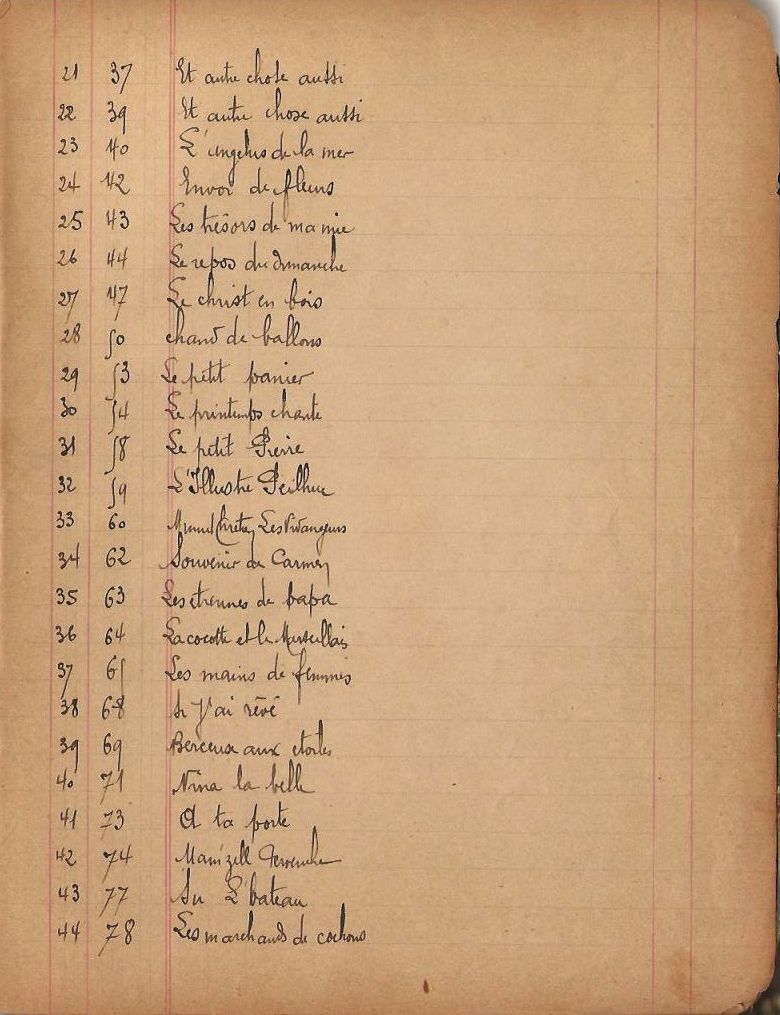 21 37 Et autre chose aussi
22 39 Et autre chose aussi
23 40 L'angelus de la mer
24 42 Envoi de fleurs
25 43 Les trésors de ma mie
26 44 Le repos du dimanche
27 47 Le christ en bois
28 50 chand de ballons
29 53 Le petit panier
30 54 Le printemps chante
31 58 Le petit Pierre
32 59 L'Illustre
33 60 Les Vidangeurs
34 62 Souvenir de Carmen
35 63 Les étrennes de papa
36 64 La cocotte et le Marseillais
37 65 Les mains de femmes
38 68 Si J'ai rêvé
39 69 Berceuse aux etoiles
40 71 Nina la belle
41 73 A ta porte
42 74 Mam'zell Pervenche
43 77 Su L'bateau
44 78 Les marchands de cochons